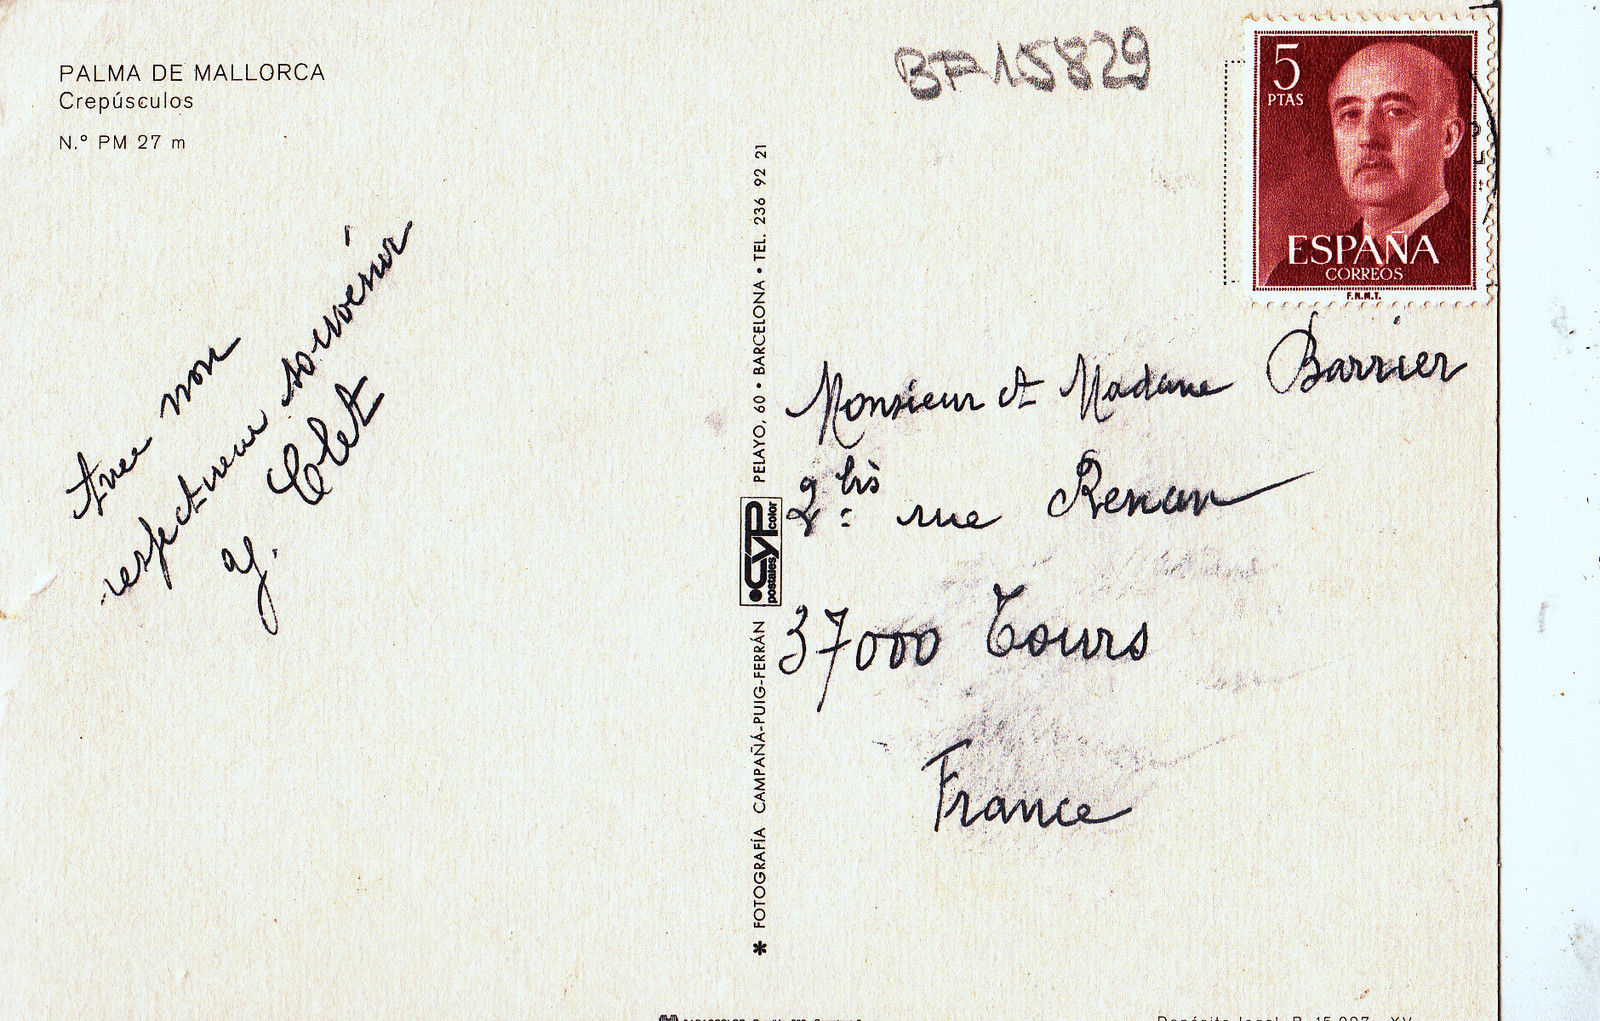 PALMA DE MALLORCA
Crepúsculos
N.º PM 27 m
BF 15829
5
PTAS
ESPAÑA
CORREOS
F.N.M.T.
Avec mon
respectueux souvenir
Y. Clet
* FOTOGRAFÍA CAMPAÑÁ-PUIG-FERRÁN
CYP
postales color
PELAYO, 60 • BARCELONA • TEL. 236 92 21
Monsieur et Madame Barrier
2 bis rue Renan
37000 Tours
France
Depósito legal B. 15.007 - XV